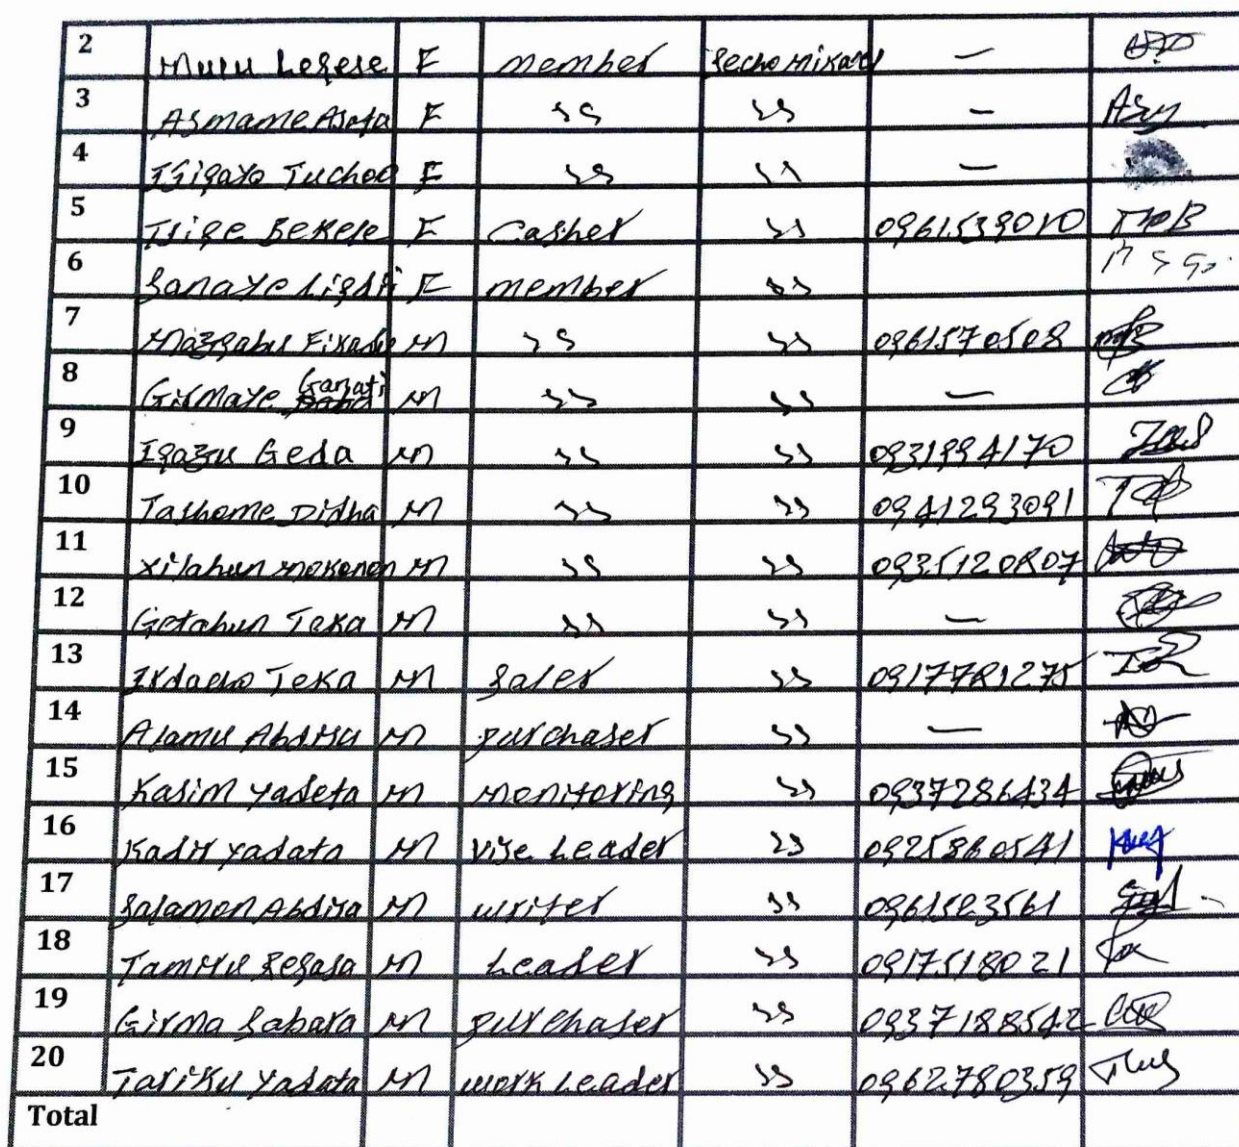 2 Mulu Legese F member Secho Mikael —
3 Asmame Asefa F ,, ,, —
4 Tsigayo Tuchoo F ,, ,, —
5 Tsige Bekele F Casher ,, 0961539010
6 Sanaye F member ,,
7 Fikadu M ,, ,, 0961570508
8 Girmaye Ganati M ,, ,, —
9 Igazu Geda M ,, ,, 0931994170
10 Tashome Didha M ,, ,, 0941293091
11 Xilahun mokonen M ,, ,, 0935120807
12 Getahun Teka M ,, ,, —
13 Teka M Saler ,, 0917781275
14 Alamu Abdisa M purchaser ,, —
15 Kasim Yadeta M monitoring ,, 0937286434
16 Kadir Yadata M Vise Leader ,, 0925860541
17 Salamon Abdisa M writer ,, 0961523561
18 Tamiru Regasa M Leader ,, 0917518021
19 Girma Sabara M purchaser ,, 0937188542
20 Tariku Yadata M work Leader ,, 0962780359
Total